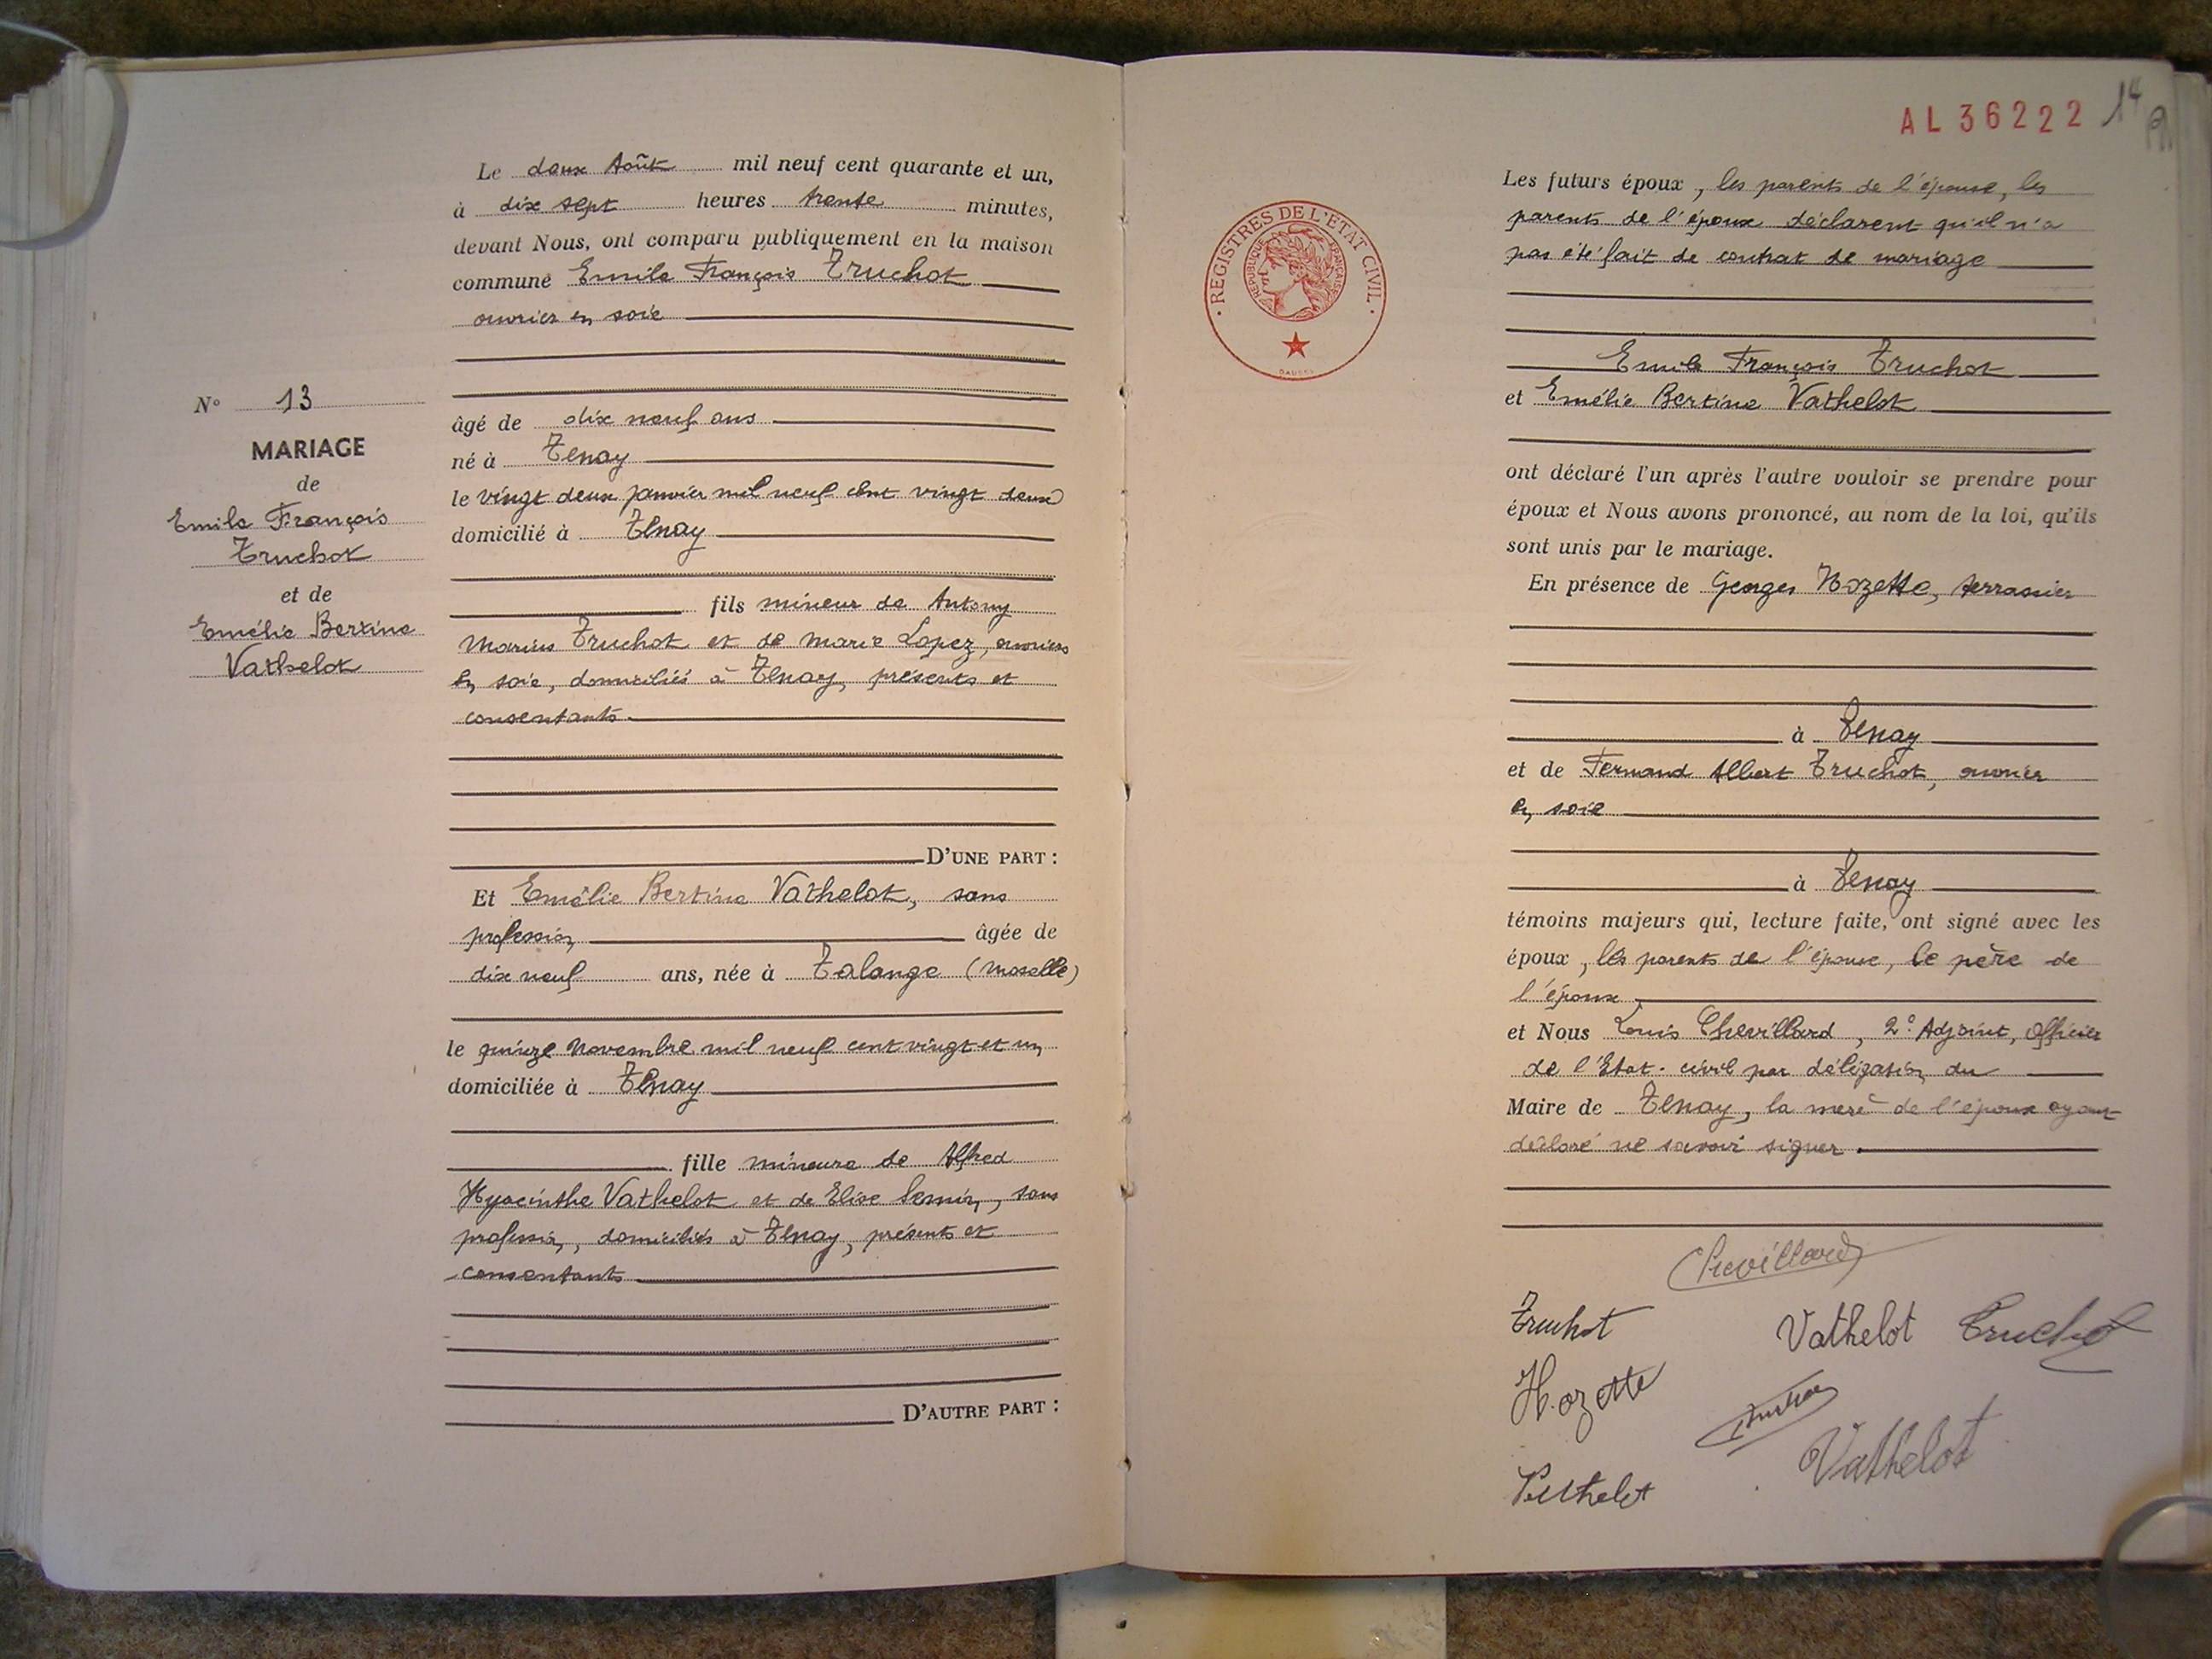 Le deux Août mil neuf cent quarante et un,
à dix sept heures trente minutes,
devant Nous, ont comparu publiquement en la maison
commune Emile François Truchot
ouvrier en soie
N° 13
MARIAGE
de
Emile François
Truchot
et de
Emélie Bertine
Vathelot
âgé de dix neuf ans
né à Tenay
le vingt deux janvier mil neuf cent vingt deux
domicilié à Tenay
fils mineur de Antony
Marius Truchot et de Marie Lopez, ouvriers
en soie, domiciliés à Tenay, présents et
consentants.
D'UNE PART :
Et Emélie Bertine Vathelot, sans
profession âgée de
dix neuf ans, née à Talange (Moselle)
le quinze Novembre mil neuf cent vingt et un
domiciliée à Tenay
fille mineure de Alfred
Hyacinthe Vathelot et de Elise, sans
profession, domiciliés à Tenay, présents et
consentants
D'AUTRE PART :
AL 36222 14
REGISTRES DE L'ETAT CIVIL
REPUBLIQUE FRANÇAISE
Les futurs époux, les parents de l'épouse, les
parents de l'époux déclarent qu'il n'a
pas été fait de contrat de mariage
Emile François Truchot
et Emélie Bertine Vathelot
ont déclaré l'un après l'autre vouloir se prendre pour
époux et Nous avons prononcé, au nom de la loi, qu'ils
sont unis par le mariage.
En présence de Georges Hozette, terrassier
à Tenay
et de Fernand Albert Truchot, ouvrier
en soie
à Tenay
témoins majeurs qui, lecture faite, ont signé avec les
époux, les parents de l'épouse, le père de
l'époux
et Nous Louis Chevillard, 2° Adjoint, Officier
de l'Etat-civil par délégation du
Maire de Tenay, la mère de l'époux ayant
déclaré ne savoir signer.
Chevillard
Truchot
Vathelot
Truchot
Hozette
Truchot
Vathelot